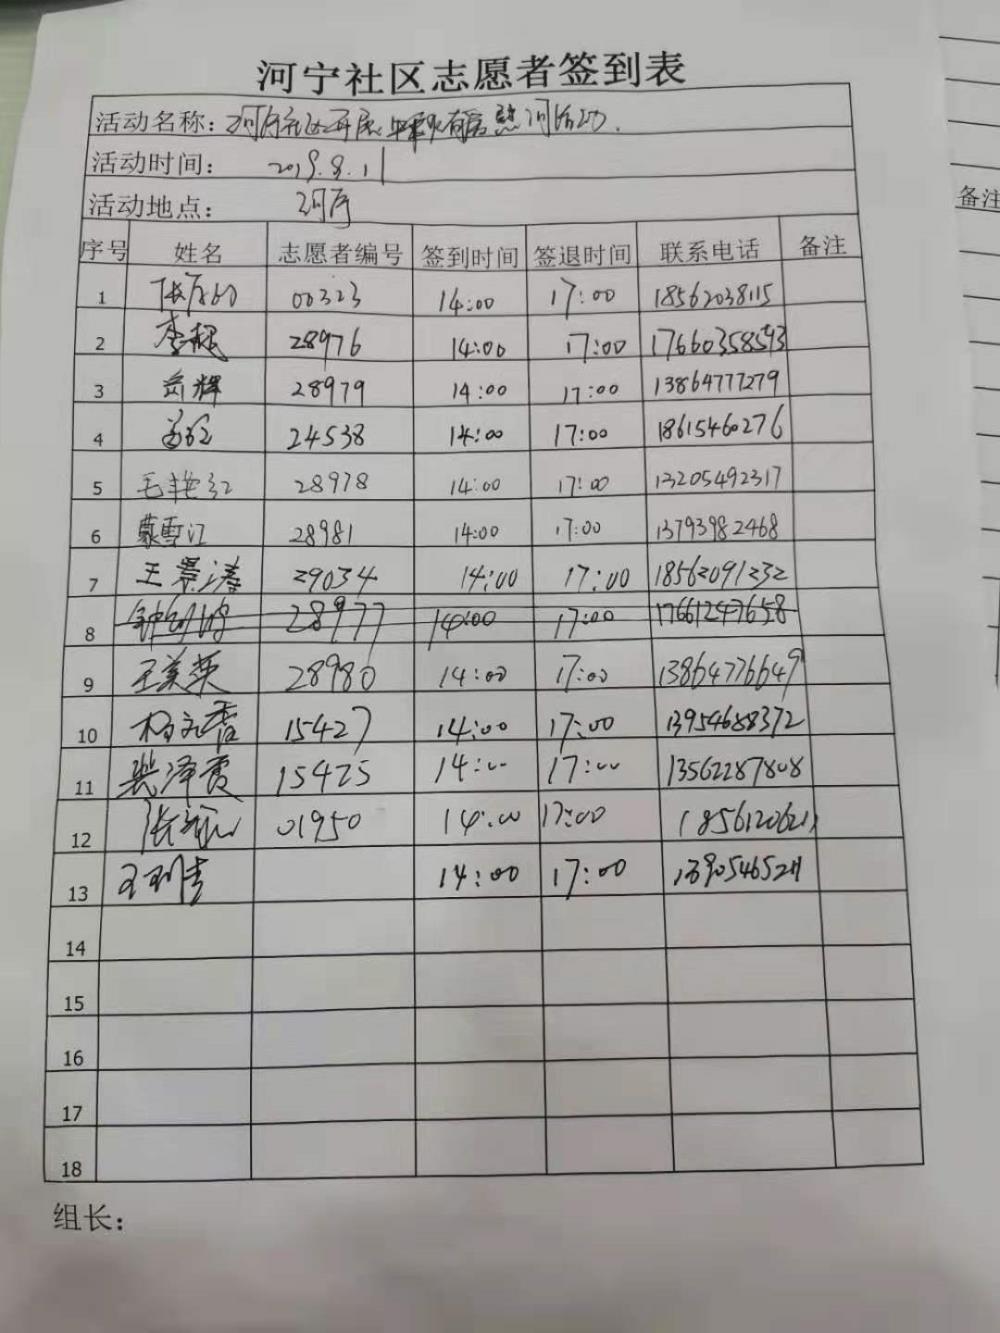 河宁社区志愿者签到表
活动名称：河宁社区开展
活动时间：2019.8.11
活动地点：河宁
序号 姓名 志愿者编号 签到时间 签退时间 联系电话 备注
1 00323 14:00 17:00 18562038115
2 李 28976 14:00 17:00 17660358593
3 辉 28979 14:00 17:00 13864777279
4 24538 14:00 17:00 18615460276
5 毛艳红 28978 14:00 17:00 13205492317
6 蒙雪江 28981 14:00 17:00 13793982468
7 王景涛 29034 14:00 17:00 18562091232
8 28977 14:00 17:00 17661247658
9 王美英 28980 14:00 17:00 13864776649
10 杨香 15427 14:00 17:00 13954688372
11 裴泽霞 15425 14:00 17:00 13562287808
12 张 01950 14:00 17:00
13 王 14:00 17:00
14
15
16
17
18
组长：
备注